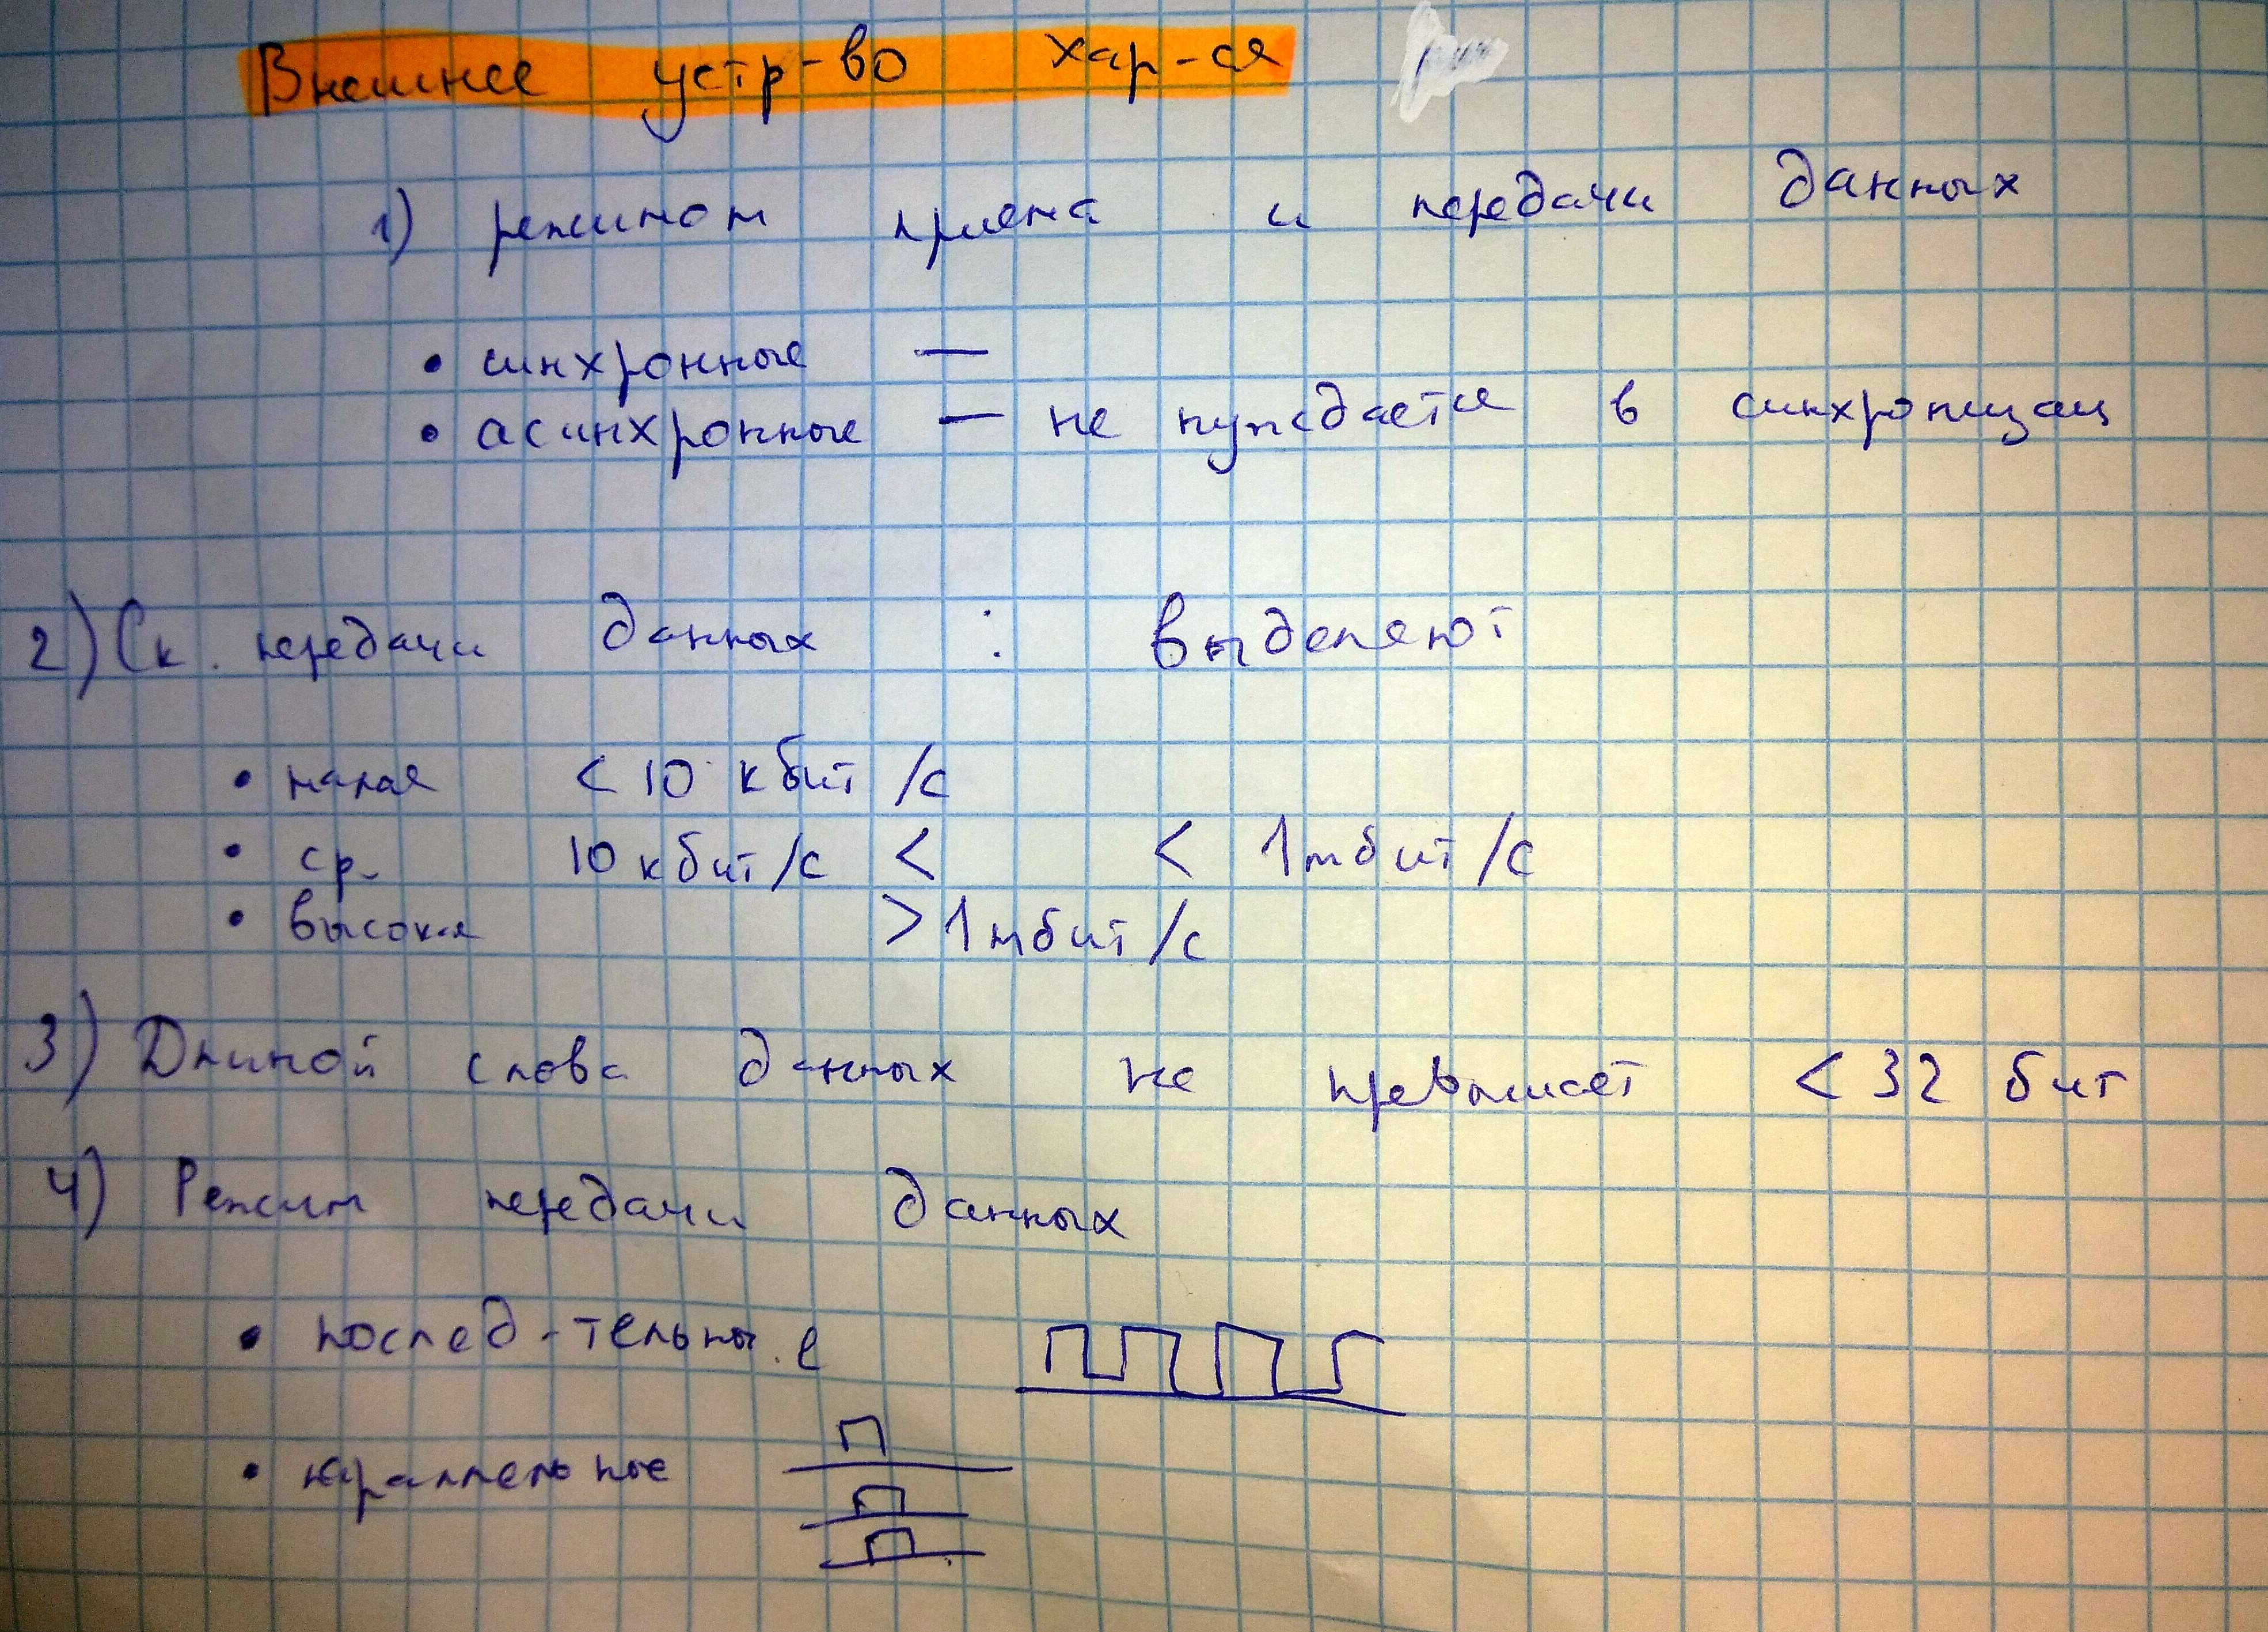 Внешнее устр-во хар-ся
1) режимом приема и передачи данных
• синхронные —
• асинхронные — не нуждается в синхронизац
2) Ск. передачи данных : выделяют
• малая < 10 кбит/с
• ср. 10 кбит/с <     < 1 мбит/с
• высокая > 1 мбит/с
3) Длиной слова данных не превышает < 32 бит
4) Режим передачи данных
• послед-тельные
• параллельные